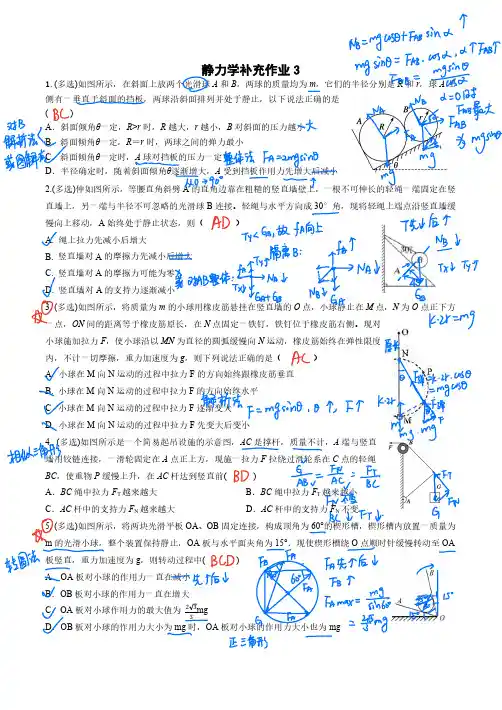 静力学补充作业3
N_B=mgcosθ+F_AB sinα ↑
mg sinθ=F_AB·cosα, α↑F_AB↑
F_AB=mgsinθ/cosα
α=0时
F_AB最大
为mgsinθ
1.(多选)如图所示，在斜面上放两个光滑球A和B，两球的质量均为m，它们的半径分别是R和r，球A
侧有一垂直于斜面的挡板，两球沿斜面排列并处于静止，以下说法正确的是
(BC)
对B
解析法
或图解法
A．斜面倾角θ一定，R>r时，R越大，r越小，B对斜面的压力越小大
B．斜面倾角θ一定，R＝r时，两球之间的弹力最小
C．斜面倾角θ一定时，A球对挡板的压力一定 整体法 F_A=2mgsinθ
D．半径确定时，随着斜面倾角θ逐渐增大，A受到挡板作用力先增大后减小
从0→90° ↑
2.(多选)伸如图所示，等腰直角斜劈A的直角边靠在粗糙的竖直墙壁上，一根不可伸长的轻绳一端固定在竖
直墙上，另一端与半径不可忽略的光滑球B连接。轻绳与水平方向成30°角，现将轻绳上端点沿竖直墙缓
慢向上移动，A始终处于静止状态，则（ AD ）
Ty<G_B, 故f_A向上
T先↓后↑
N_B↓
Tx↓ Ty↑
A．绳上拉力先减小后增大
B．竖直墙对A的摩擦力先减小后增大
C．竖直墙对A的摩擦力可能为零
D．竖直墙对A的支持力逐渐减小
隔离B:
或对AB整体:
3.(多选)如图所示，将质量为m的小球用橡皮筋悬挂在竖直墙的O点，小球静止在M点，N为O点正下方
一点，ON间的距离等于橡皮筋原长，在N点固定一铁钉，铁钉位于橡皮筋右侧。现对
小球施加拉力F，使小球沿以MN为直径的圆弧缓慢向N运动，橡皮筋始终在弹性限度
内，不计一切摩擦，重力加速度为g，则下列说法正确的是（ AC ）
K·2r=mg
原长
A．小球在M向N运动的过程中拉力F的方向始终跟橡皮筋垂直
B．小球在M向N运动的过程中拉力F的方向始终水平
C．小球在M向N运动的过程中拉力F逐渐变大
D．小球在M向N运动的过程中拉力F先变大后变小
解析法
F=mgsinθ, θ↑, F↑
相似三角形
4．(多选)如图所示是一个简易起吊设施的示意图，AC是撑杆，质量不计，A端与竖直
墙用铰链连接，一滑轮固定在A点正上方，现施一拉力F拉绕过滑轮系在C点的轻绳
BC，使重物P缓慢上升，在AC杆达到竖直前( BD )
G/AB=F_N/AC=F_T/BC
A．BC绳中拉力F_T越来越大　B．BC绳中拉力F_T越来越小
C．AC杆中的支持力F_N越来越大　D．AC杆中的支持力F_N不变
F_N不变
BC↓ F_T↓
5.(多选)如图所示，将两块光滑平板OA、OB固定连接，构成顶角为60°的楔形槽，楔形槽内放置一质量为
m的光滑小球，整个装置保持静止，OA板与水平面夹角为15°。现使楔形槽绕O点顺时针缓慢转动至OA
板竖直，重力加速度为g，则转动过程中( BCD )
A．OA板对小球的作用力一直在减小 先↑后↓
B．OB板对小球的作用力一直在增大
C．OA板对小球作用力的最大值为2√3/3 mg
D．OB板对小球的作用力大小为mg时，OA板对小球的作用力大小也为mg
F_A先↑后↓
F_B↑
F_Amax=mg/sin60°
=2√3/3 mg
正三角形